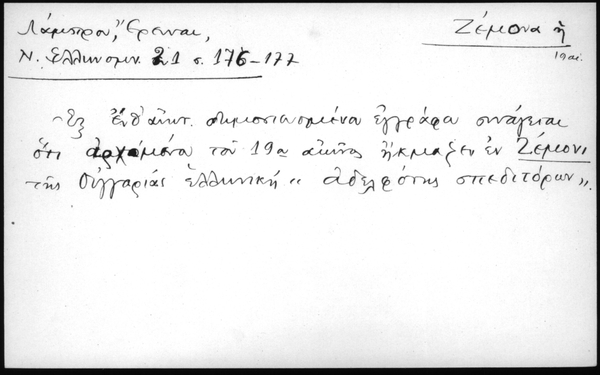 Λάμπρου, "Έρευναι,
Ν. Ἑλληνομν. 21 σ. 176-177
Ζέμονα ἡ
19 αἰ.
Ἐξ ἐνθ' ἀνωτ. δημοσιευομένα ἐγγράφα συνάγεται
ὅτι ἀρχομένα τοῦ 19ου αἰῶνος ἤκμαζεν ἐν Ζέμονι
τῆς Οὑγγαρίας ἑλληνική "ἀδελφότης σπεδιτόρων".